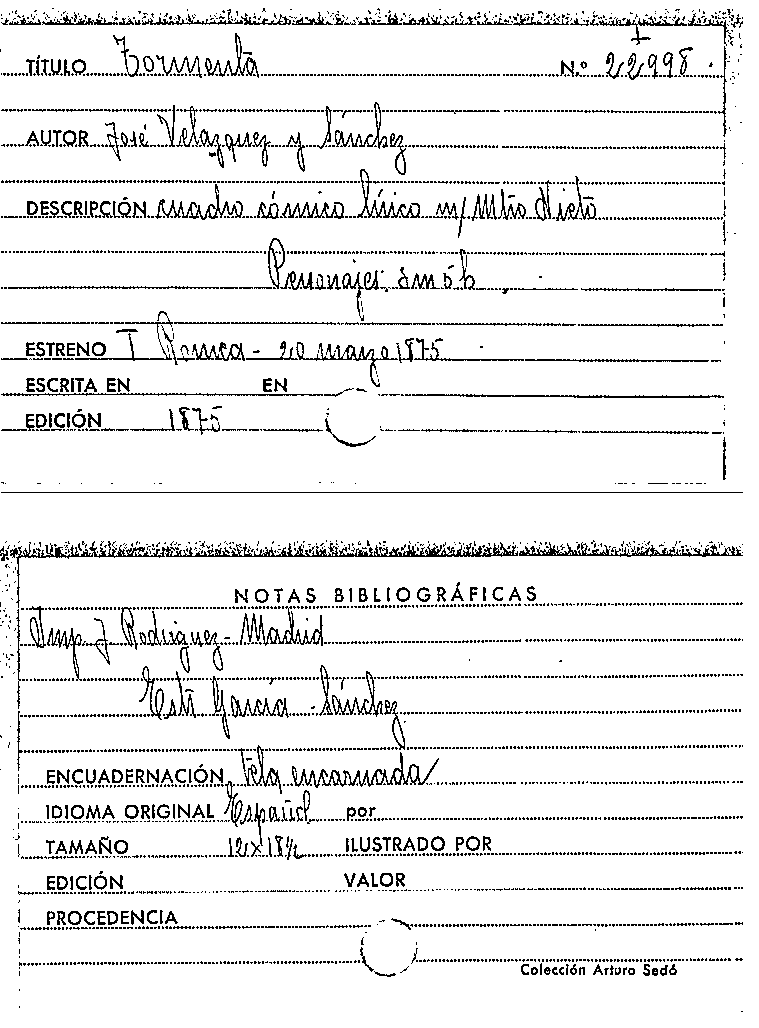 TÍTULO Tormenta N.º 22998
AUTOR José Velazquez y Sánchez
DESCRIPCIÓN cuadro cómico lírico m/ Mtro Nieto
Personajes: 2m 5h
ESTRENO T Romea - 20 marzo 1875
ESCRITA EN EN
EDICIÓN 1875
NOTAS BIBLIOGRÁFICAS
Imp J Rodriguez - Madrid
García - Sánchez
ENCUADERNACIÓN Tela encarnada
IDIOMA ORIGINAL Español por
TAMAÑO ILUSTRADO POR
EDICIÓN VALOR
PROCEDENCIA
Colección Arturo Sedó